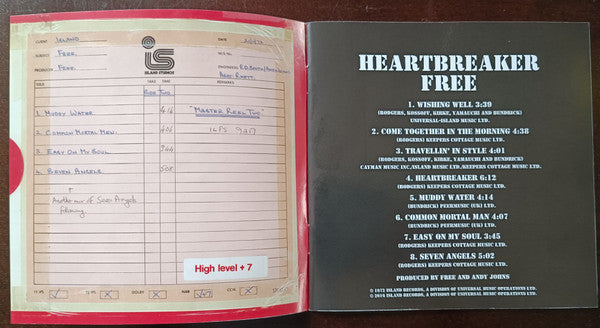 CLIENT ISLAND
SUBJECT FREE.
PRODUCER FREE.
ISLAND STUDIOS
DATE
ENGINEERS
TITLE
TAKE TIME
SIDE TWO
1. MUDDY WATER. 4.16
2. COMMON MORTAL MAN. 4.06
3. EASY ON MY SOUL. 3.44
4. SEVEN ANGELS. 5.02
"MASTER REEL TWO"
ILPS 9217
Another mix of Seven Angels
following.
High level + 7
15 IPS
DOLBY
NAB
CCIR
HEARTBREAKER
FREE
1. WISHING WELL 3:39
(RODGERS, KOSSOFF, KIRKE, YAMAUCHI AND BUNDRICK)
UNIVERSAL-ISLAND MUSIC LTD.
2. COME TOGETHER IN THE MORNING 4:38
(RODGERS) KEEPERS COTTAGE MUSIC LTD.
3. TRAVELLIN' IN STYLE 4:01
(RODGERS, KOSSOFF, KIRKE, YAMAUCHI AND BUNDRICK)
CAYMAN MUSIC INC./ISLAND MUSIC LTD./KEEPERS COTTAGE MUSIC LTD.
4. HEARTBREAKER 6:12
(RODGERS) KEEPERS COTTAGE MUSIC LTD.
5. MUDDY WATER 4:14
(BUNDRICK) PEERMUSIC (UK) LTD.
6. COMMON MORTAL MAN 4:07
(BUNDRICK) PEERMUSIC (UK) LTD.
7. EASY ON MY SOUL 3:45
(RODGERS) KEEPERS COTTAGE MUSIC LTD.
8. SEVEN ANGELS 5:02
(RODGERS) KEEPERS COTTAGE MUSIC LTD.
PRODUCED BY FREE AND ANDY JOHNS
© 1972 ISLAND RECORDS, A DIVISION OF UNIVERSAL MUSIC OPERATIONS LTD.
© 2016 ISLAND RECORDS, A DIVISION OF UNIVERSAL MUSIC OPERATIONS LTD.